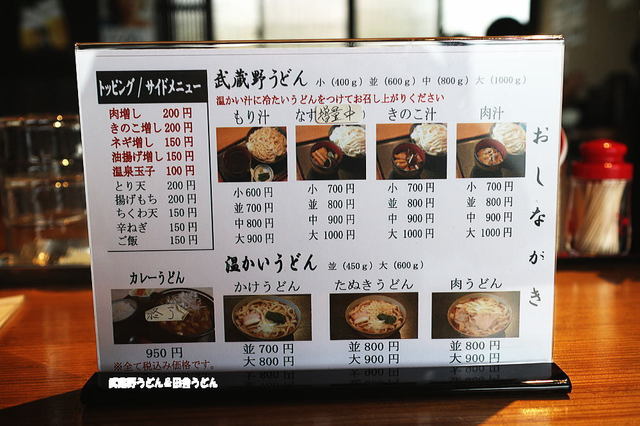 トッピング / サイドメニュー
肉増し 200円
きのこ増し 200円
ネギ増し 150円
油揚げ増し 150円
温泉玉子 100円
とり天 200円
揚げもち 200円
ちくわ天 150円
辛ねぎ 150円
ご飯 150円
武蔵野うどん 小(400g) 並(600g) 中(800g) 大(1000g)
温かい汁に冷たいうどんをつけてお召し上がりください
もり汁
小 600円
並 700円
中 800円
大 900円
なす 増量中
小 700円
並 800円
中 900円
大 1000円
きのこ汁
小 700円
並 800円
中 900円
大 1000円
肉汁
小 700円
並 800円
中 900円
大 1000円
おしながき
カレーうどん
終了
950円
※全て税込み価格です。
温かいうどん 並(450g) 大(600g)
かけうどん
並 700円
大 800円
たぬきうどん
並 800円
大 900円
肉うどん
並 800円
大 900円
武蔵野うどん&田舎うどん